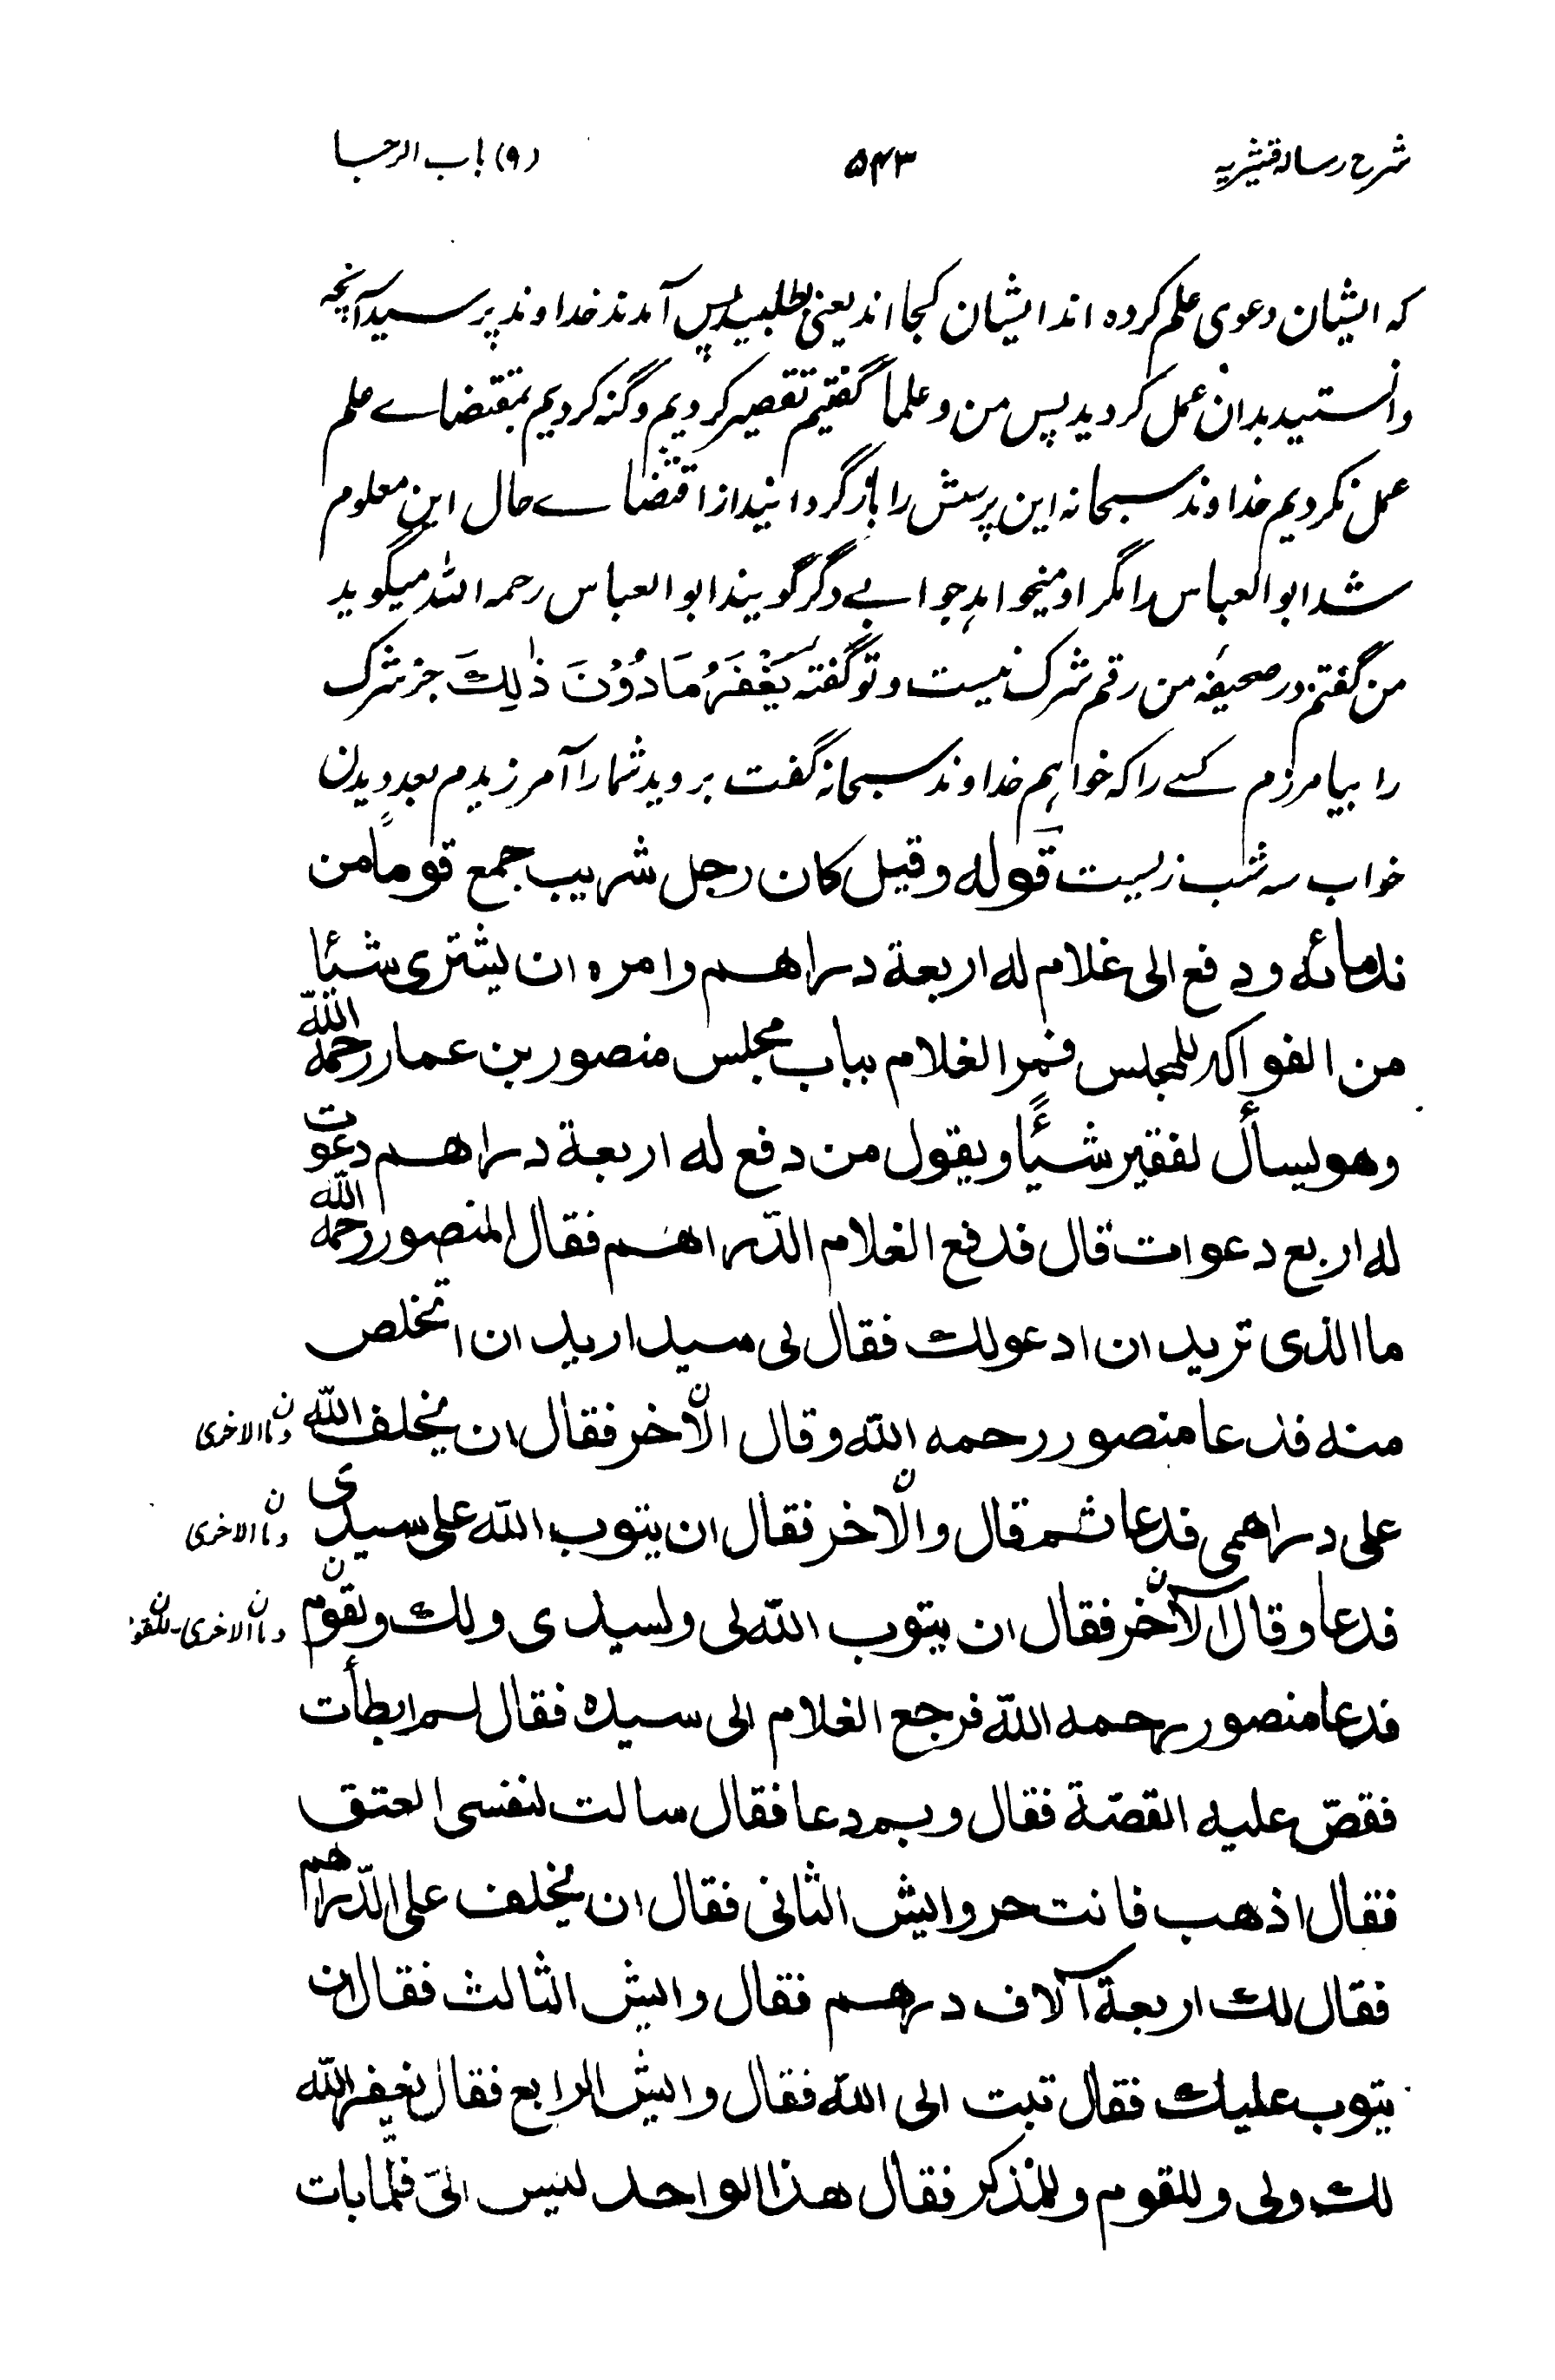 شرح رساله قشیریه ۵۴۳ (۹) باب الرجا
که ایشان دعوی علم کرده اند ایشان کجا اند یعنی بطلبید پس آمدند خداوند پرسید آنچه
دانستید بدان عمل کردید پس من و علما گفتیم تقصیر کردیم و گنه کردیم بمقتضاے علم
عمل نکردیم خداوند سبحانه این پرسش را بازگردانید از اقتضاے حال این معلوم
شد ابو العباس را مگر او میخواهد جوابے دگر گویند ابو العباس رحمه الله میگوید
من گفتم در صحیفۂ من رقم شرک نیست و تو گفتۂ یَغْفِرُ مَا دُوْنَ ذٰلِكَ جز شرک
را بیامرزم کسے را که خواهم خداوند سبحانه گفت بروید شما را آمرزیدم بعد دیدن
خواب سه شب زیست قوله وقیل کان رجل شریب جمع قومًا من
ندمائه ودفع الی غلام له اربعة دراهم وامره ان یشتری شیئا
من الفواکه للمجلس فمر الغلام بباب مجلس منصور بن عمار رحمه الله
وهو یسأل لفقیر شیئًا ویقول من دفع له اربعة دراهم دعوت
له اربع دعوات قال فدفع الغلام الدّراهم فقال المنصور رحمه الله
ما الذی ترید ان ادعو لك فقال لی سید ارید ان اتخلص
منه فدعا منصور رحمه الله وقال الآخر فقال ان یخلف الله
ن وما الاخری
علی دراهمی فدعا ثم قال والآخر فقال ان یتوب الله علی سیدی
ن وما الاخری
فدعا وقال الآخر فقال ان یتوب الله لی ولسیدی ولك ولقوم
ن وما الاخری - ن للقوم
فدعا منصور رحمه الله فرجع الغلام الی سیده فقال لم ابطأت
فقصّ علیه القصّة فقال وبم دعا فقال سالت لنفسی العتق
فقال اذهب فانت حر وایش الثانی فقال ان یخلف علی الدّراهم
فقال لك اربعة آلاف درهم فقال وایش الثالث فقال ان
یتوب علیك فقال تبت الی الله فقال وایش الرابع فقال یغفر الله
لك ولی وللقوم وللمذکر فقال هذا الواحد لیس الیّ فلمّا بات